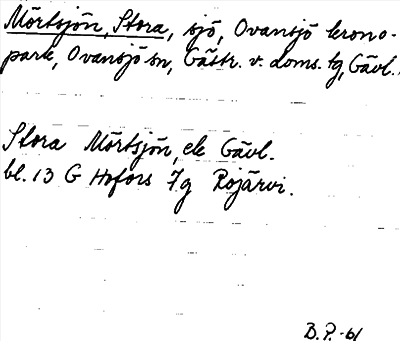 Mörtsjön, Stora, sjö, Ovansjö krono-
park, Ovansjö sn, Gästr. v. doms. tg, Gävl.
Stora Mörtsjön, ek Gävl.
bl. 13 G Hofors 7g Rojärvi.
B.P.-61